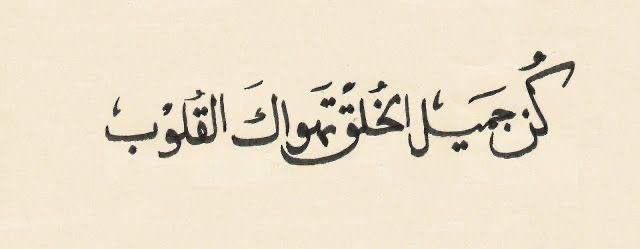 كُن جَميل الخُلقْ تهواكَ القُلوْب